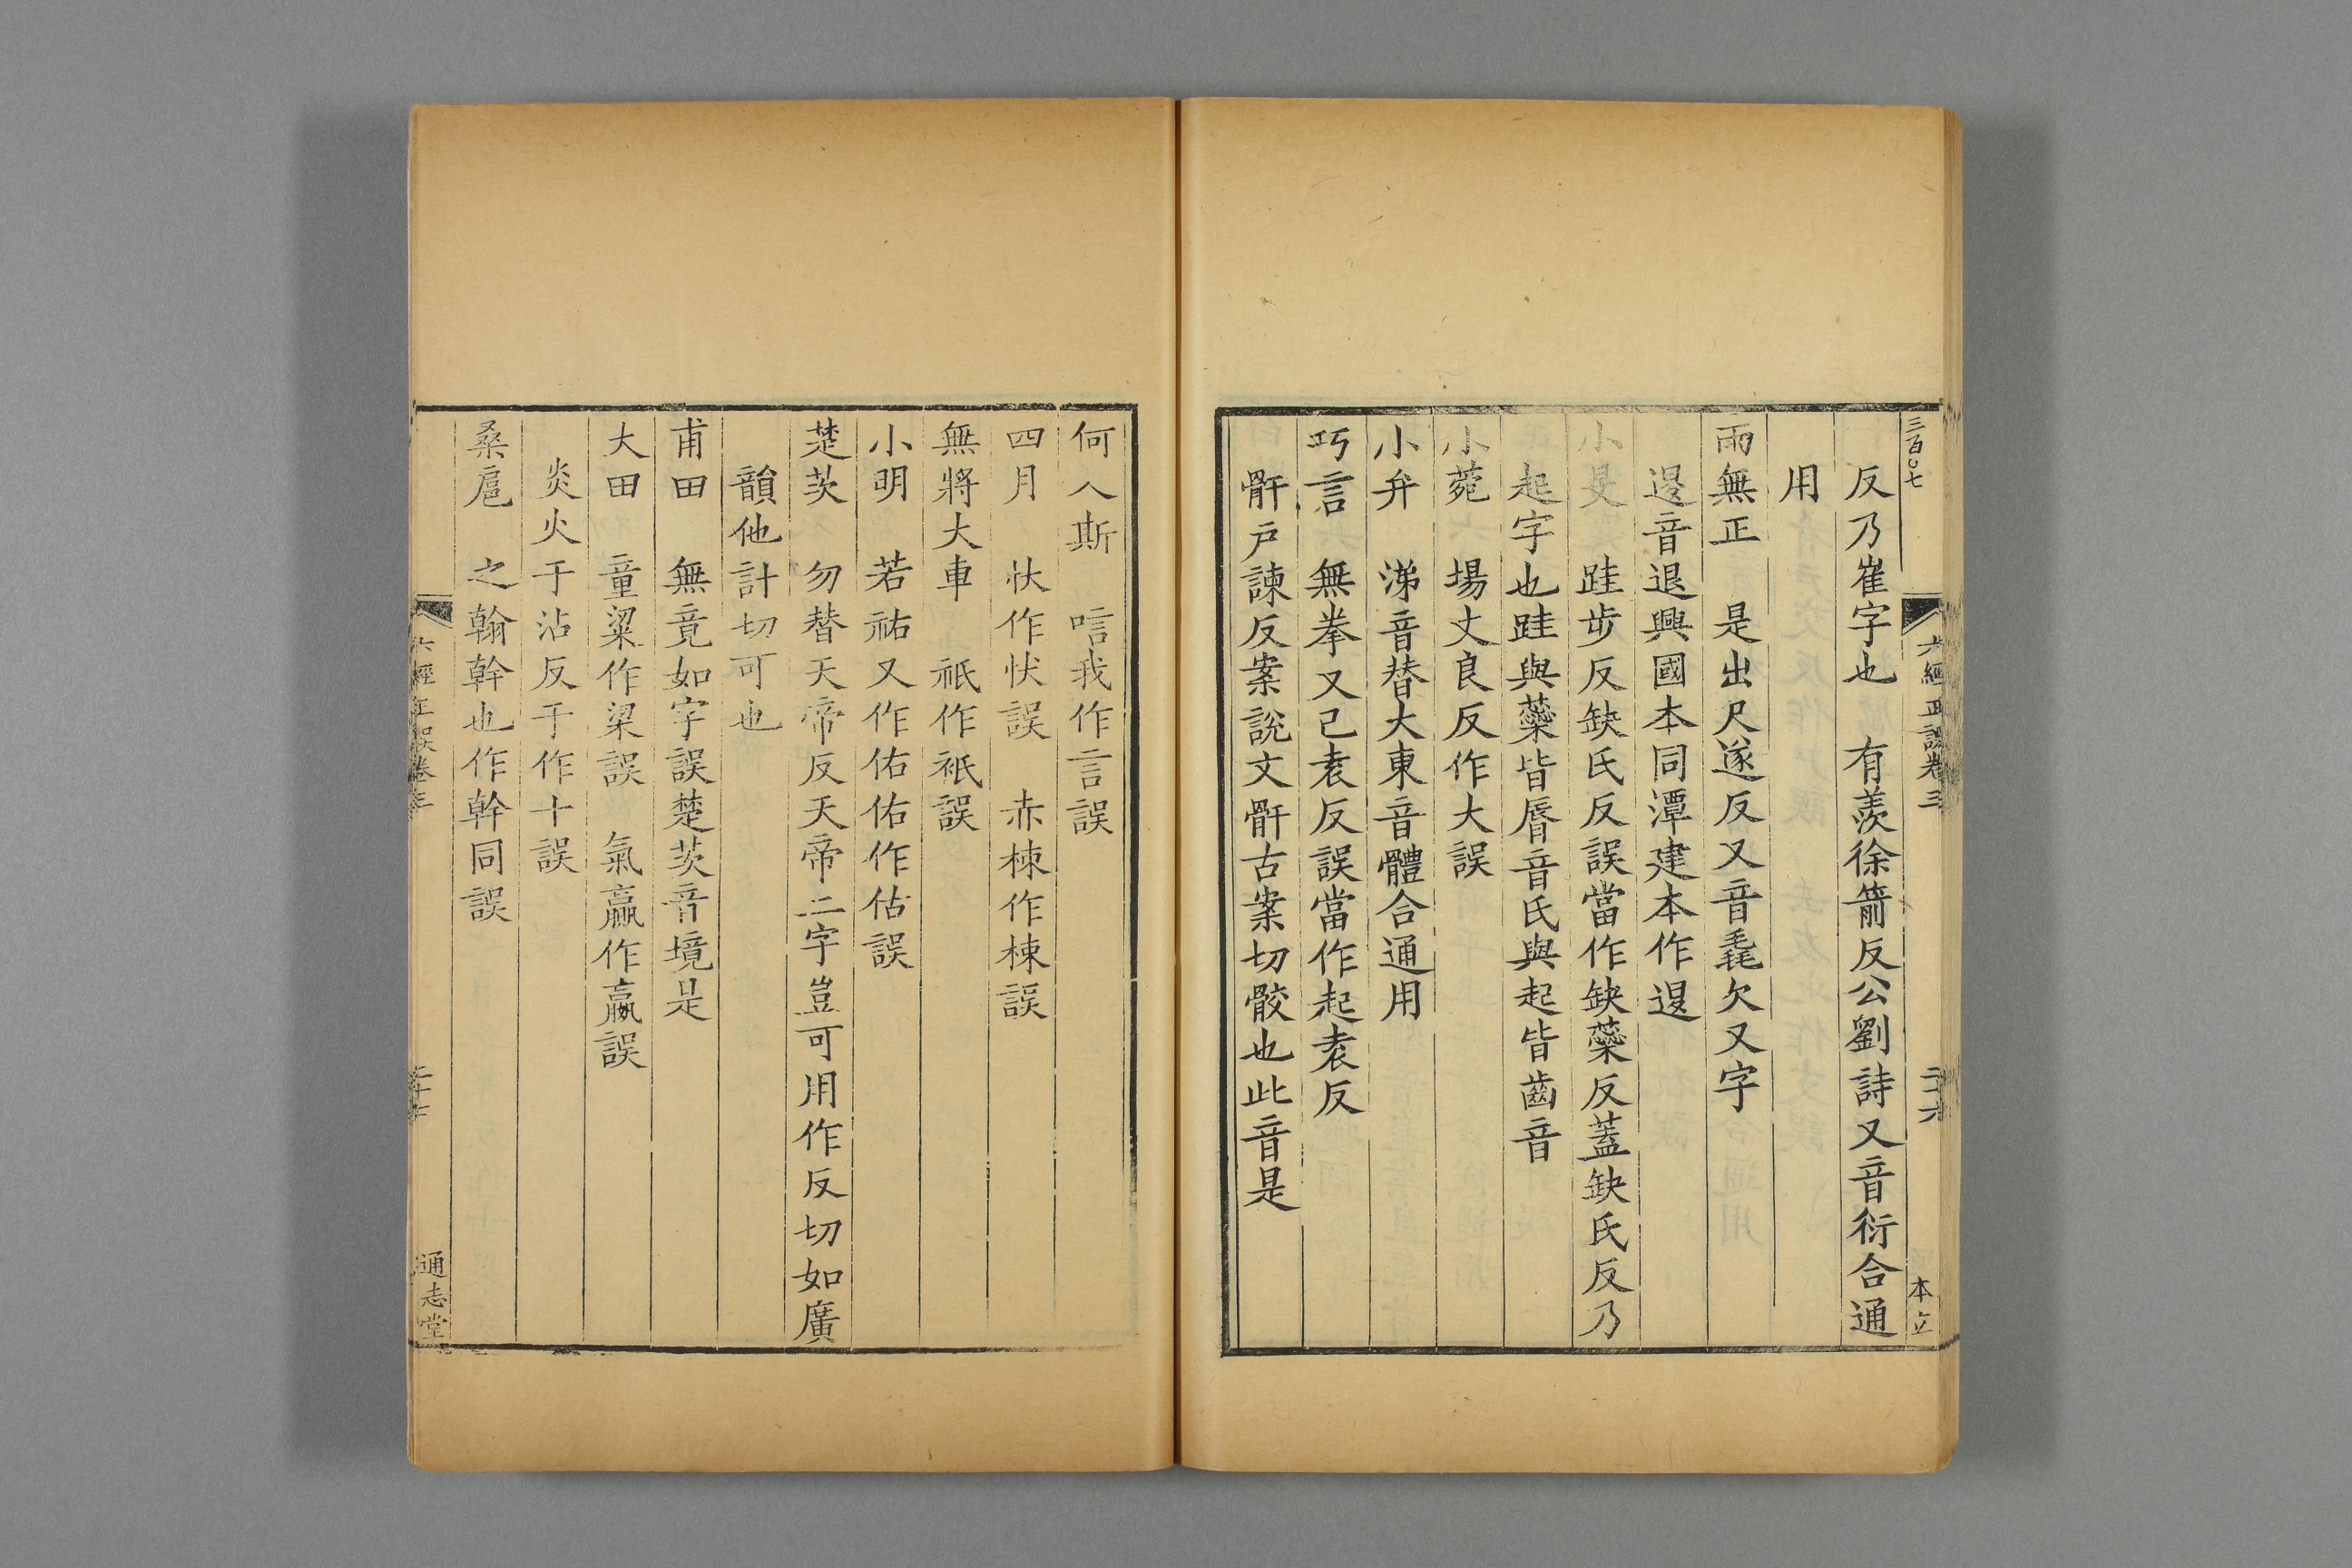 三百〇七
六經正誤卷三
二十六
本立
反乃崔字也　有羨徐箭反公劉詩又音衍合通
用
雨無正　是出尺遂反又音毳欠又字
𨓤音退興國本同潭建本作𨓤
小旻　跬步反缺氏反誤當作缺蘂反蓋缺氏反乃
起字也跬與蘂皆脣音氏與起皆齒音
小菀　場丈良反作大誤
小弁　涕音替大東音體合通用
巧言　無拳又己袁反誤當作起袁反
骭戸諫反案說文骭古案切骹也此音是
何人斯　唁我作言誤
四月　忕作忕誤　赤梀作棟誤
無將大車　祇作衹誤
小明　若祐又作佑佑作估誤
楚茨　勿替天帝反天帝二字豈可用作反切如廣
韻他計切可也
甫田　無竟如字誤楚茨音境是
大田　童粱作梁誤　氣羸作嬴誤
炎火于沾反于作十誤
桑扈　之翰幹也作幹同誤
六經正誤卷三
二十七
通志堂